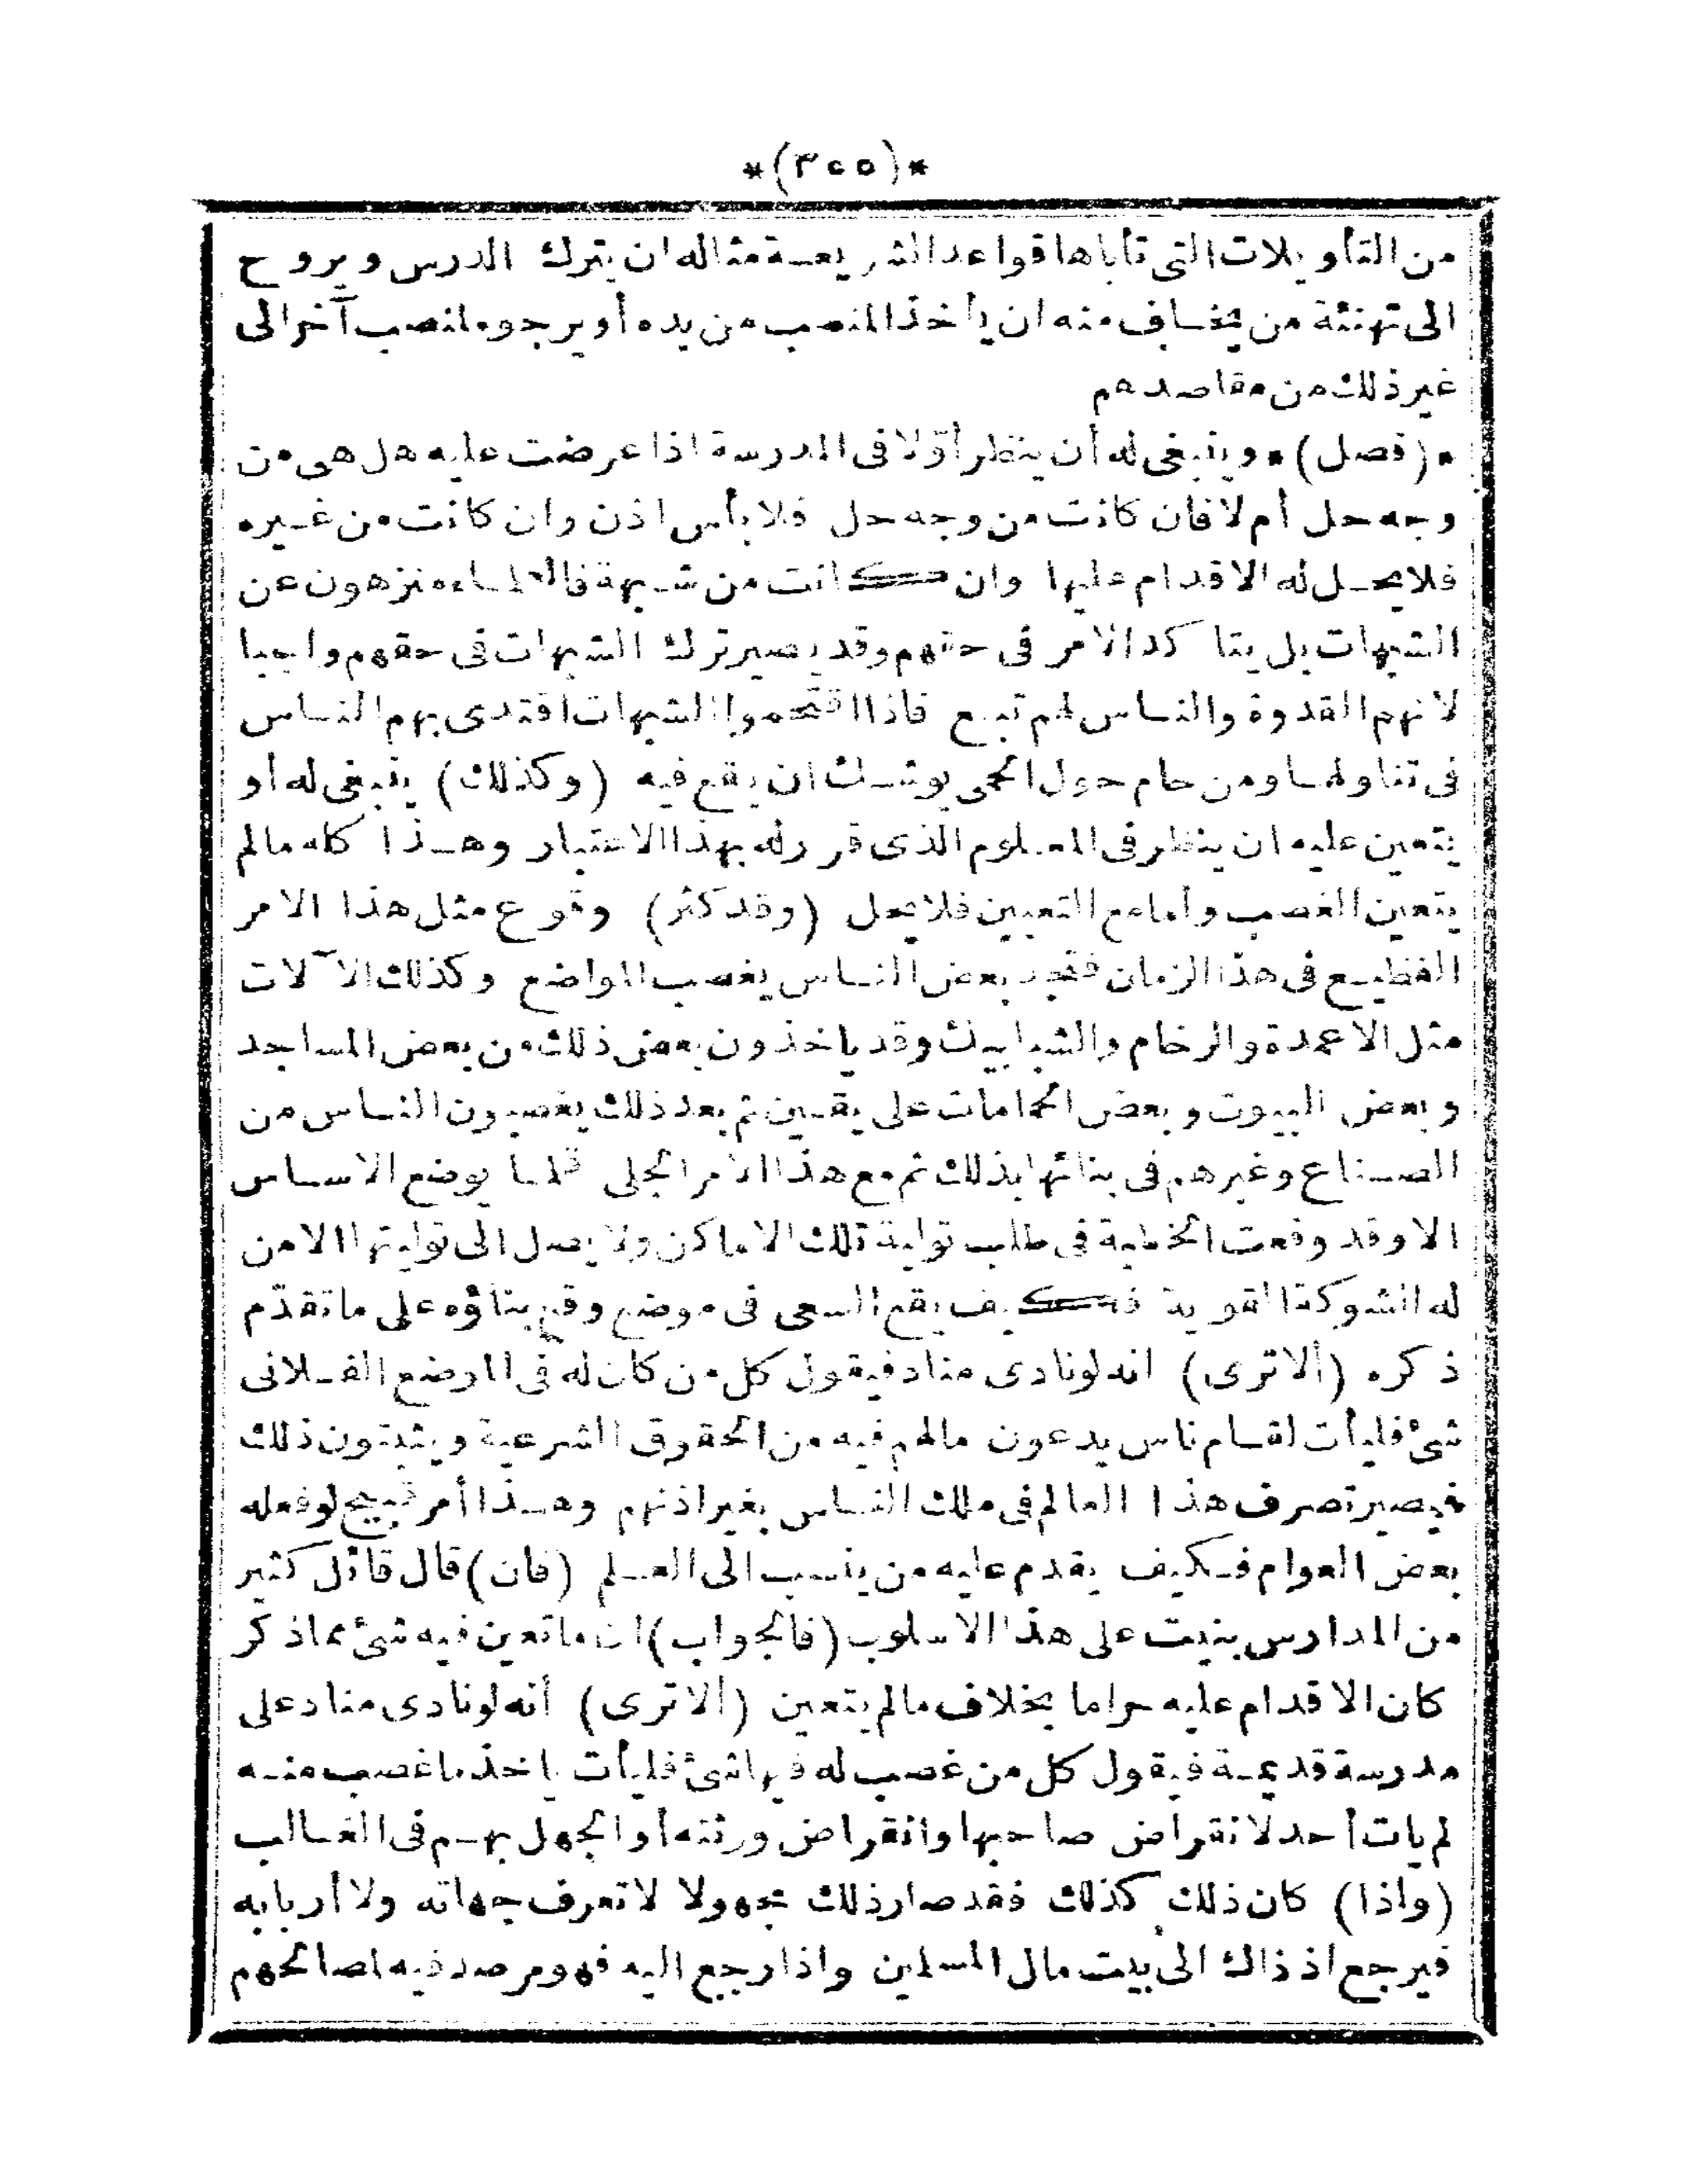 *(٣٠٥)*
من التأويلات التى تأباها قواعد الشريعة مثاله ان يترك الدرس ويروح
الى تهنئة من يخاف منه ان يأخذ المنصب من يده أو يرجوه لمنصب آخر الى
غير ذلك من مقاصدهم
*(فصل)* وينبغى له أن ينظر أوّلا فى المدرسة اذا عرضت عليه هل هى من
وجه حل أم لا فان كانت من وجه حل فلا بأس اذن وان كانت من غيره
فلا يحل له الاقدام عليها وان كانت من شبهة فالعلماء منزهون عن
الشبهات بل يتاكد الامر فى حقهم وقد يصير ترك الشبهات فى حقهم واجبا
لانهم القدوة والناس لهم تبع فاذا اقتحموا الشبهات اقتدى بهم الناس
فى تناولها ومن حام حول الحمى يوشك ان يقع فيه (وكذلك) ينبغى له أو
يتعين عليه ان ينظر فى المعلوم الذى قرر له بهذا الاعتبار وهذا كله مالم
يتعين الغصب وأما مع التعيين فلا يحل (وقد كثر) وقوع مثل هذا الامر
الفظيع فى هذا الزمان فتجد بعض الناس يغصب المواضع وكذلك الآلات
مثل الاعمدة والرخام والشبابيك وقد ياخذون بعض ذلك من بعض المساجد
وبعض البيوت وبعض الحمامات على يقين ثم بعد ذلك يغصبون الناس من
الصناع وغيرهم فى بنائها بذلك ثم مع هذا الامر الجلى قلما يوضع الاساس
الا وقد وقعت الخطبة فى طلب تولية تلك الاماكن ولا يصل الى توليتها الا من
له الشوكة القوية فكيف يقع السعى فى موضع وقع بناؤه على ما تقدّم
ذكره (ألا ترى) انه لو نادى مناد فيقول كل من كان له فى الموضع الفلانى
شئ فليأت لقام ناس يدعون مالهم فيه من الحقوق الشرعية ويثبتون ذلك
فيصير تصرف هذا العالم فى ملك الناس بغير اذنهم وهذا أمر قبيح لو فعله
بعض العوام فكيف يقدم عليه من ينسب الى العلم (فان) قال قائل كثير
من المدارس بنيت على هذا الاسلوب (فالجواب) ان ما تعين فيه شئ مما ذكر
كان الاقدام عليه حراما بخلاف مالم يتعين (ألا ترى) أنه لو نادى مناد على
مدرسة قديمة فيقول كل من غصب له فيها شئ فليأت ياخذ ما غصب منه
لم يات أحد لانقراض صاحبها وانقراض ورثته أو الجهل بهم فى الغالب
(واذا) كان ذلك كذلك فقد صار ذلك مجهولا لا تعرف جهاته ولا أربابه
فيرجع اذ ذاك الى بيت مال المسلمين واذا رجع اليه فهو مرصد فيه لمصالحهم